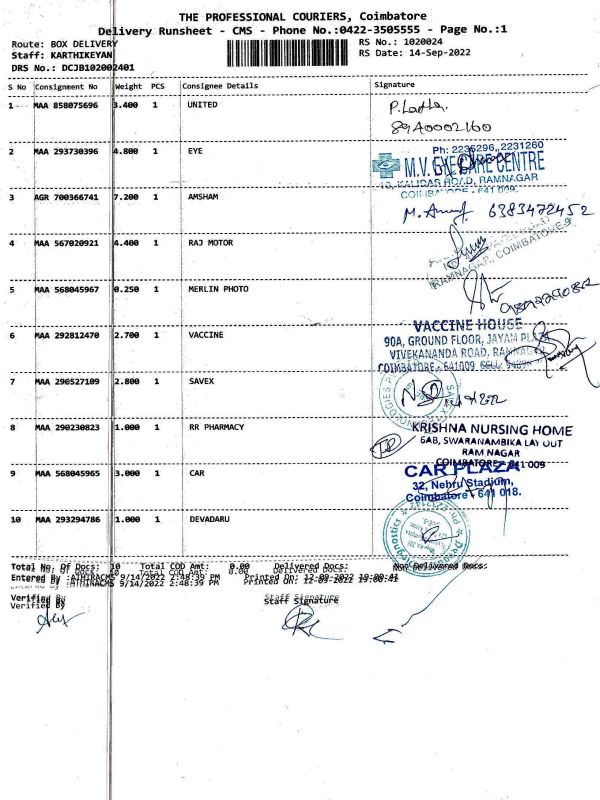 THE PROFESSIONAL COURIERS, Coimbatore
Delivery Runsheet - CMS - Phone No.:0422-3505555 - Page No.:1
Route: BOX DELIVERY RS No.: 1020024
Staff: KARTHIKEYAN RS Date: 14-Sep-2022
DRS No.: DCJB102002401
S No Consignment No Weight PCS Consignee Details Signature
1 MAA 858075696 3.400 1 UNITED
2 MAA 293730396 4.800 1 EYE
Ph: 2235296, 2231260
M.V. EYE CARE CENTRE
10, KALIDAS ROAD, RAMNAGAR
COIMBATORE - 641 009.
3 AGR 700366741 7.200 1 AMSHAM
6383472452
4 MAA 567020921 4.400 1 RAJ MOTOR
RAMNAGAR, COIMBATORE-9
5 MAA 568045967 0.250 1 MERLIN PHOTO
6 MAA 292812470 2.700 1 VACCINE
VACCINE HOUSE
90A, GROUND FLOOR, JAYAM PLAZA
VIVEKANANDA ROAD, RAMNAGAR
COIMBATORE - 641009
7 MAA 290527109 2.800 1 SAVEX
8 MAA 290230823 1.000 1 RR PHARMACY
KRISHNA NURSING HOME
6AB, SWARANAMBIKA LAY OUT
RAM NAGAR
COIMBATORE - 641 009
9 MAA 568045965 3.000 1 CAR
CAR PLAZA
32, Nehru Stadium,
Coimbatore - 641 018.
10 MAA 293294786 1.000 1 DEVADARU
Total No. Of Docs: 10 Total COD Amt: 0.00 Delivered Docs: Non Delivered Docs:
Entered By :ATHIRACMS 9/14/2022 2:48:39 PM Printed On: 12-09-2022
Verified By Staff Signature